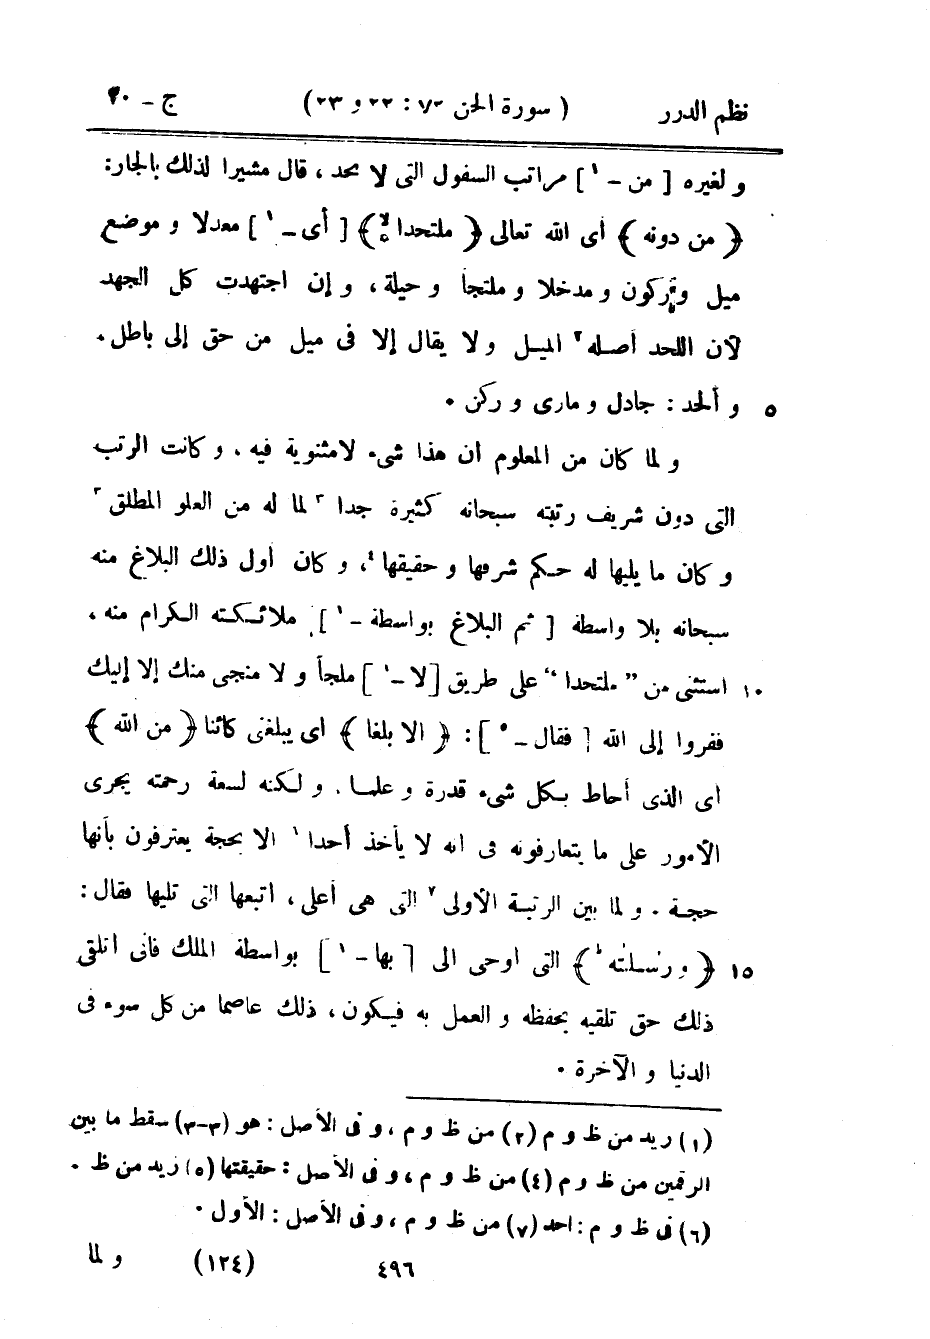 نظم الدرر ( سورة الجن ٧٢ : ٢٢ و ٢٣ ) ج – ٢٠
و لغيره [ من – ١ ] مراتب السفول التى لا تحد ، قال مشيرا لذلك بالجار :
﴿ من دونه ﴾ أى الله تعالى ﴿ ملتحدا لا ﴾ [ أى – ١ ] معدلا و موضع
ميل و ركون و مدخلا و ملتجأ و حيلة ، و إن اجتهدت كل الجهد
لآن اللحد أصله ٢ الميل و لا يقال إلا فى ميل من حق إلى باطل .
٥ و ألحد : جادل و مارى و ركن .
و لما كان من المعلوم أن هذا شىء لا مثنوية فيه ، و كانت الرتب
التى دون شريف رتبته سبحانه كثيرة جدا ٣ لما له من العلو المطلق ٣
و كان ما يليها له حكم شرفها و حقيقها ٤ ، و كان أول ذلك البلاغ منه
سبحانه بلا واسطة [ ثم البلاغ بواسطة – ١ ] ملائكته الكرام منه ،
١٠ استثنى من ” ملتحدا “ على طريق [ لا – ١ ] ملجأ و لا منجى منك إلا إليك
ففروا إلى الله [ فقال – ٥ ] : ﴿ الا بلغا ﴾ اى يبلغنى كائنا ﴿ من الله ﴾
اى الذى أحاط بكل شىء قدرة و علما . و لكنه لسعة رحمته يجرى
الآمور على ما يتعارفونه فى انه لا يأخذ أحدا ٦ الا بحجة يعترفون بأنها
حجة . و لما بين الرتبة الآولى ٧ التى هى أعلى ، اتبعها التى تليها فقال :
١٥ ﴿ و رسلته ط ﴾ التى اوحى الى [ بها – ١ ] بواسطة الملك فانى اتلقى
ذلك حق تلقيه بحفظه و العمل به فيكون ، ذلك عاصما من كل سوء فى
الدنيا و الآخرة .
(١) زيد من ظ و م (٢) من ظ و م ، و فى الأصل : هو (٣-٣) سقط ما بين
الرقمين من ظ و م (٤) من ظ و م ، و فى الأصل : حقيقتها (٥) زيد من ظ .
(٦) فى ظ و م : احد (٧) من ظ و م ، و فى الأصل : الأول .
٤٩٦ (١٢٤) و لما